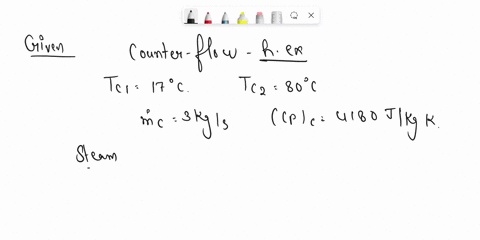 Given Counter-flow-h.ex
Tc1 = 17°C. Tc2 = 80°C
ṁc = 3kg/s (Cp)c = 4180 J/kg K.
Steam